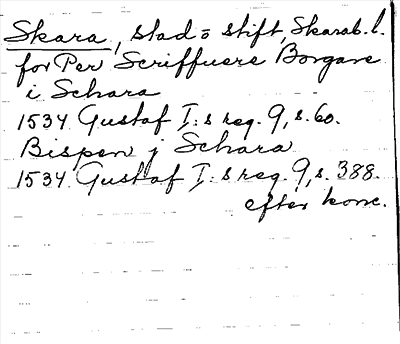 Skara, stad o stift, Skarab. l.
for Per Scriffuere Borgare
i Schara
1534 Gustaf I:s reg. 9, s. 60.
Bispen j Schara
1534 Gustaf I:s reg. 9, s. 388.
efter konc.